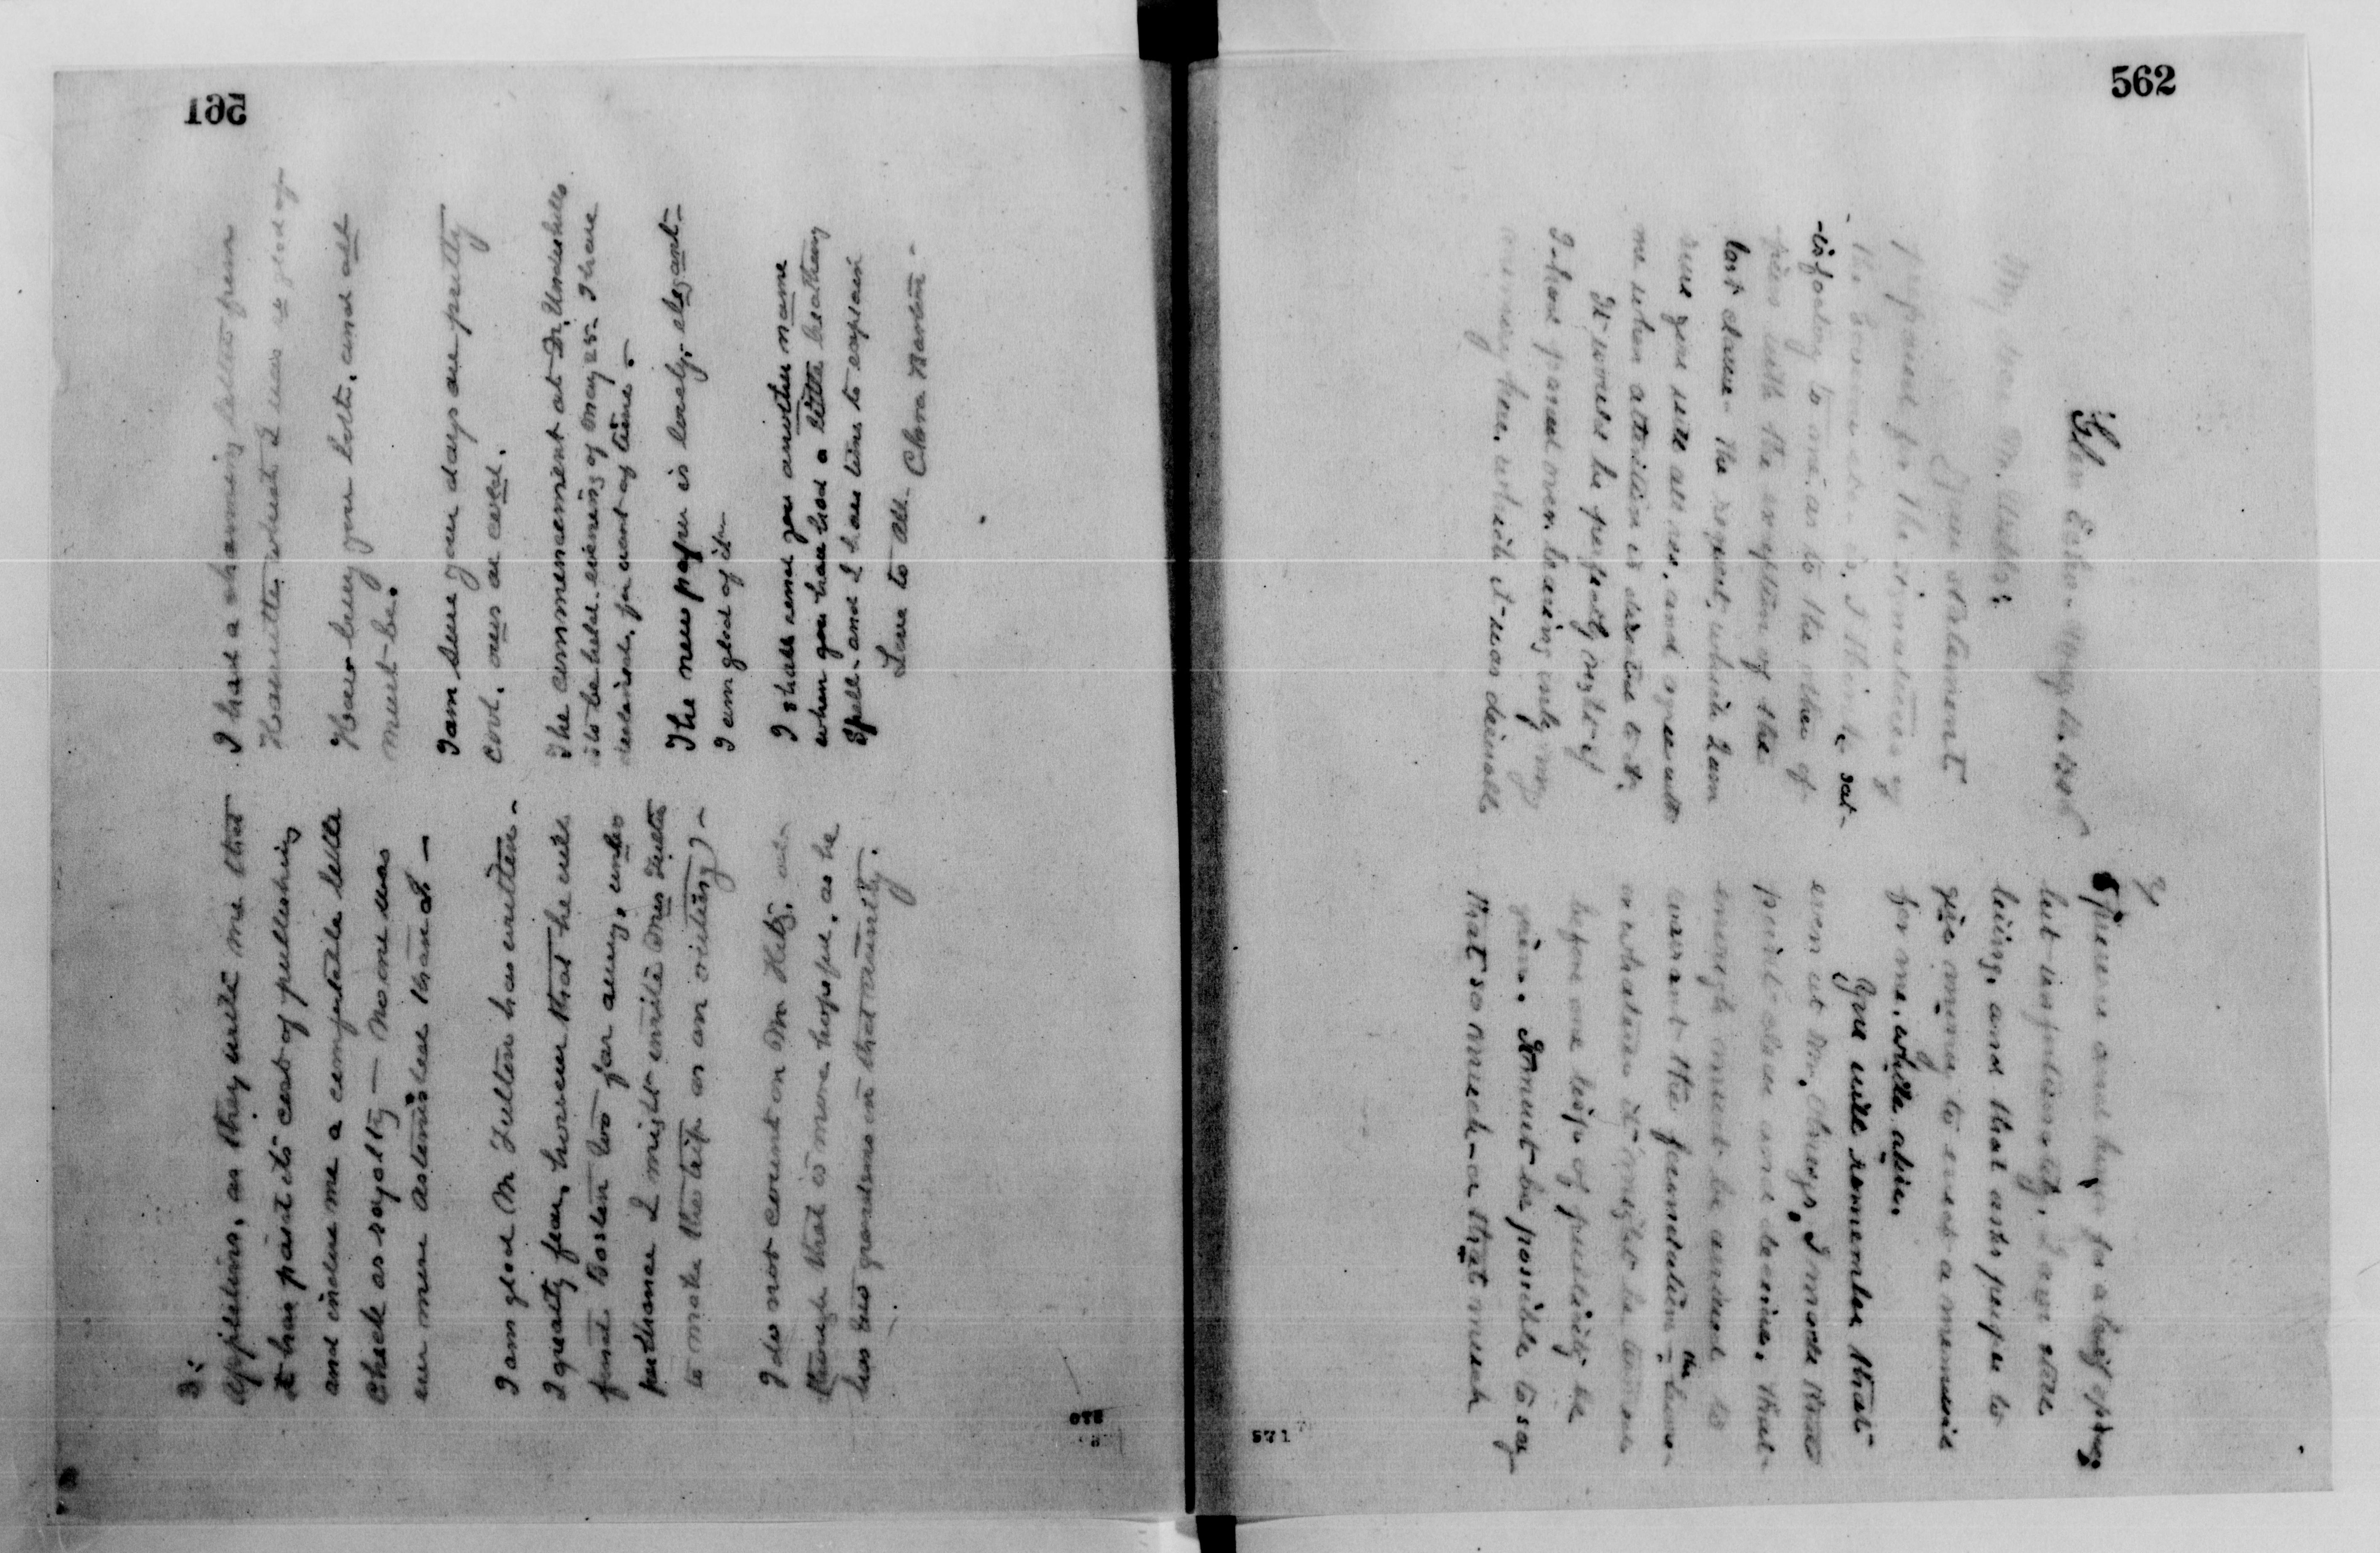 561
3.
Appletons, as they write me that
it has paid its cost of publishing
and enclose me a comfortable little
check as royalty — No one was
ever more astonished than I —
I am glad Mr Fulton has written —
I greatly fear, however that he will
find Boston too far away, unless
perchance I might invite Mrs Fulton
to make the trip as an outing —
I do not count on Mr Hitz,
though that is more hopeful, as he
has two grandsons in that vicinity.
I had a charming letter from
Harriette which I was so glad of
How busy you both, and all
must be.
I am sure your days are pretty
cool, ours are cold.
The commencement at Dr. Underhills
is to be held evening of May 25— I have
declined, for want of time —
The new paper is lovely, elegant —
I am glad of it —
I shall send you another name
when you have had a little breathing
spell — and I have time to explain
Love to all — Clara Barton —
562
Glen Echo — May
My dear Mr.
Your statement
prepared for the signatures of
the
-isfactory to one as to the other of
with the exception of the
last clause — the request, which I am
sure you will all see, and agree with
me when attention is directed to it.
It would be perfectly right if
I had passed over leaving only my
memory here, which it was desirable
2/
and hope for a
but unfortunately, I am still
living, and that asks people to
give money to erect a memorial
for me, while alive.
You will remember that
even at Mr. I made that
point clear and decisive, that
enough must be assured to
warrant the foundation —
or whatever it might be termed
before one lisp of publicity be
given. It must be possible to say
that so much — or that much
571